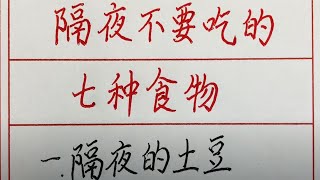 隔夜不要吃的
七种食物
一.隔夜的土豆